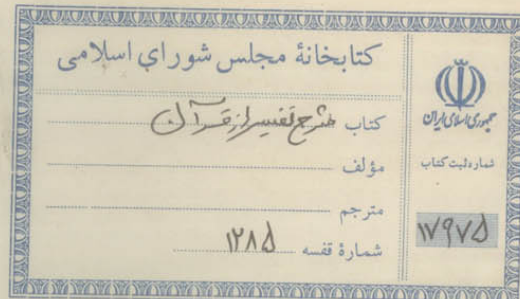 کتابخانهٔ مجلس شورای اسلامی
کتاب شرح تفسیر از قرآن
مؤلف
مترجم
شمارهٔ قفسه ۱۲۸۵
جمهوری اسلامی ایران
شماره ثبت کتاب
۱۷۹۷۵